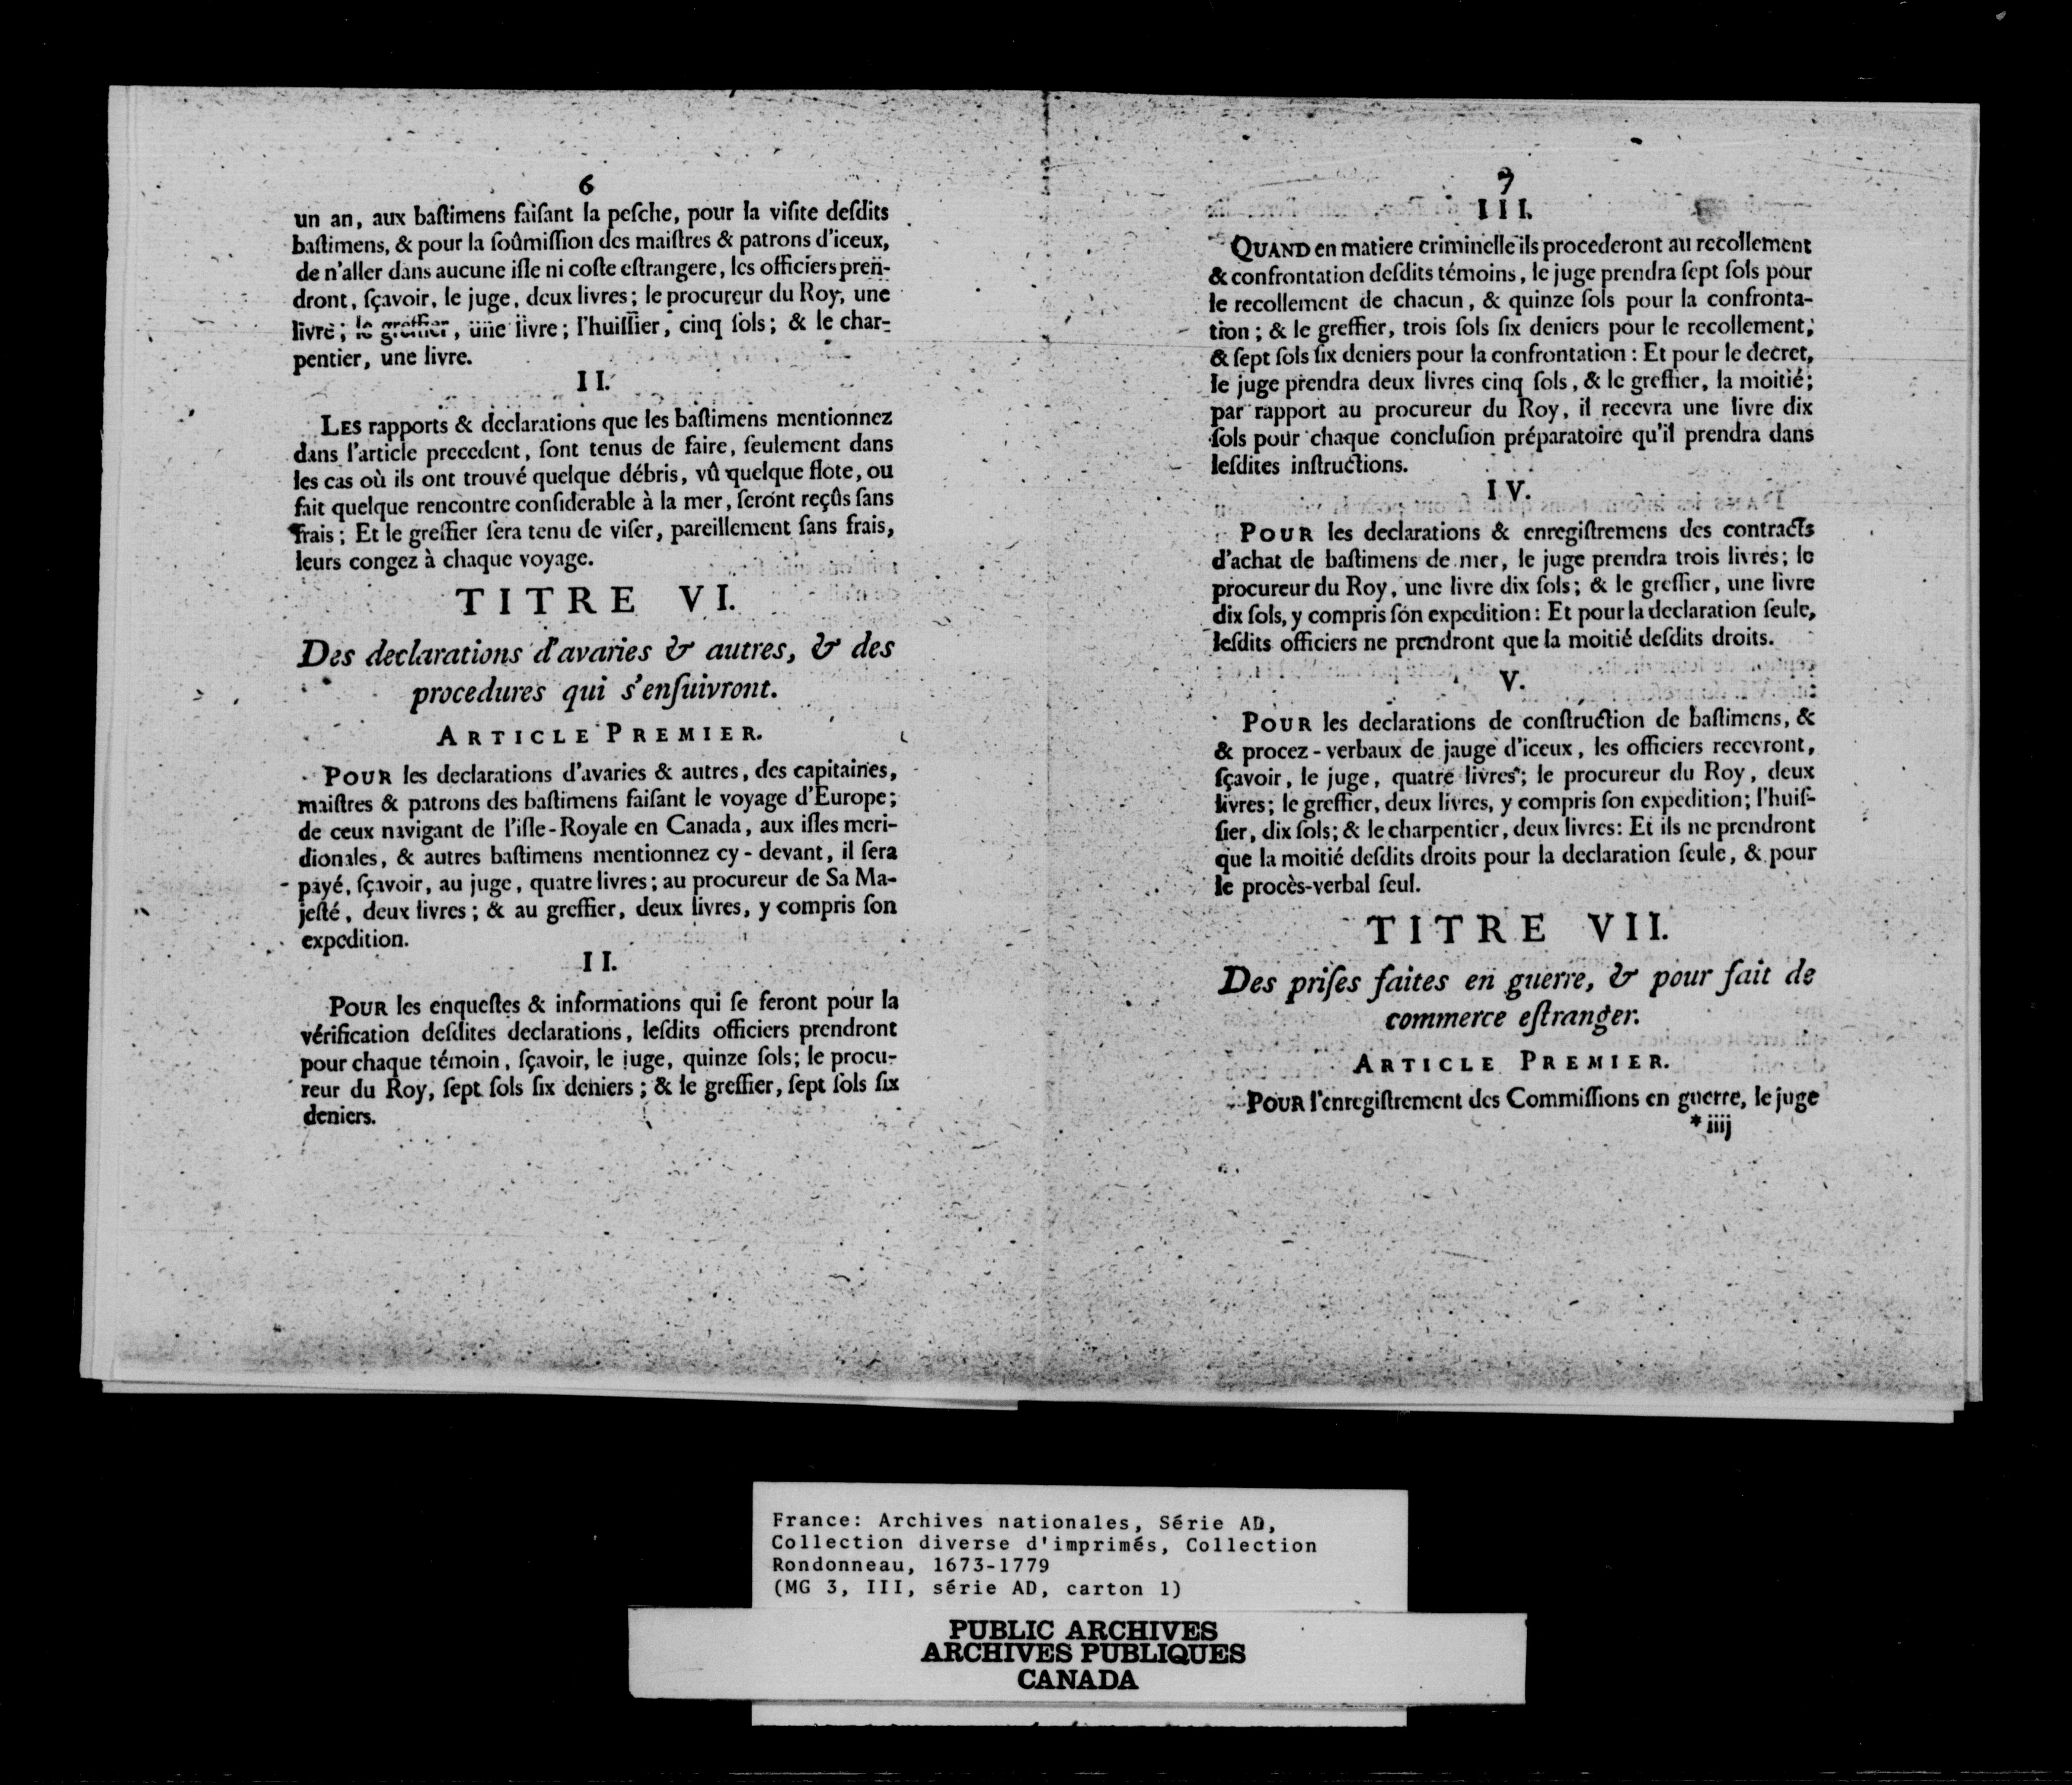 6
un an, aux baſtimens faiſant la peſche, pour la viſite deſdits
baſtimens, & pour la ſoûmiſſion des maiſtres & patrons d'iceux,
de n'aller dans aucune iſle ni coſte eſtrangere, les officiers pren-
dront, ſçavoir, le juge, deux livres; le procureur du Roy, une
livre; le greffier, une livre; l'huiſſier, cinq ſols; & le char-
pentier, une livre.
II.
LES rapports & declarations que les baſtimens mentionnez
dans l'article precedent, ſont tenus de faire, ſeulement dans
les cas où ils ont trouvé quelque débris, vû quelque flote, ou
fait quelque rencontre conſiderable à la mer, ſeront reçûs ſans
frais; Et le greffier ſera tenu de viſer, pareillement ſans frais,
leurs congez à chaque voyage.
TITRE VI.
Des declarations d'avaries & autres, & des
procedures qui s'enſuivront.
ARTICLE PREMIER.
POUR les declarations d'avaries & autres, des capitaines,
maiſtres & patrons des baſtimens faiſant le voyage d'Europe;
de ceux navigant de l'iſle-Royale en Canada, aux iſles meri-
dionales, & autres baſtimens mentionnez cy-devant, il ſera
payé, ſçavoir, au juge, quatre livres; au procureur de Sa Ma-
jeſté, deux livres; & au greffier, deux livres, y compris ſon
expedition.
II.
POUR les enqueſtes & informations qui ſe feront pour la
vérification deſdites declarations, leſdits officiers prendront
pour chaque témoin, ſçavoir, le juge, quinze ſols; le procu-
reur du Roy, ſept ſols ſix deniers; & le greffier, ſept ſols ſix
deniers.
7
III.
QUAND en matiere criminelle ils procederont au recollement
& confrontation deſdits témoins, le juge prendra ſept ſols pour
le recollement de chacun, & quinze ſols pour la confronta-
tion; & le greffier, trois ſols ſix deniers pour le recollement,
& ſept ſols ſix deniers pour la confrontation: Et pour le decret,
le juge prendra deux livres cinq ſols, & le greffier, la moitié;
par rapport au procureur du Roy, il recevra une livre dix
ſols pour chaque concluſion préparatoire qu'il prendra dans
leſdites inſtructions.
IV.
POUR les declarations & enregiſtremens des contracts
d'achat de baſtimens de mer, le juge prendra trois livres; le
procureur du Roy, une livre dix ſols; & le greffier, une livre
dix ſols, y compris ſon expedition: Et pour la declaration ſeule,
leſdits officiers ne prendront que la moitié deſdits droits.
V.
POUR les declarations de conſtruction de baſtimens, &
& procez-verbaux de jauge d'iceux, les officiers recevront,
ſçavoir, le juge, quatre livres; le procureur du Roy, deux
livres; le greffier, deux livres, y compris ſon expedition; l'huiſ-
ſier, dix ſols; & le charpentier, deux livres: Et ils ne prendront
que la moitié deſdits droits pour la declaration ſeule, & pour
le procès-verbal ſeul.
TITRE VII.
Des priſes faites en guerre, & pour fait de
commerce eſtranger.
ARTICLE PREMIER.
POUR l'enregiſtrement des Commiſſions en guerre, le juge
* iiij
France: Archives nationales, Série AD,
Collection diverse d'imprimés, Collection
Rondonneau, 1673-1779
(MG 3, III, série AD, carton 1)
PUBLIC ARCHIVES
ARCHIVES PUBLIQUES
CANADA